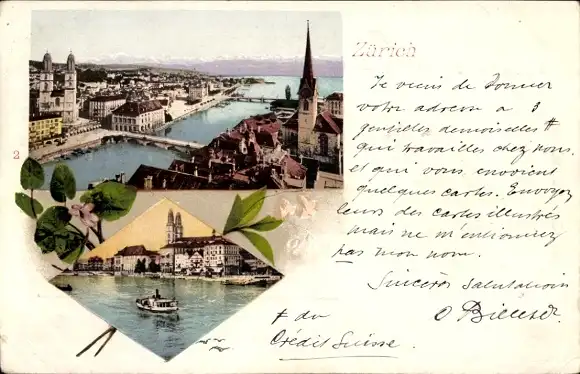 Zürich
2
Je viens de donner
votre adresse a 3
gentilles demoiselles ⧧
qui travailles chez nous
et qui vous envoient
quelques cartes. Envoyez
leurs des cartes illustrés
mais ne m'entionnez
pas mon nom.
Sincères salutations
⧧ du
Crédit Suisse